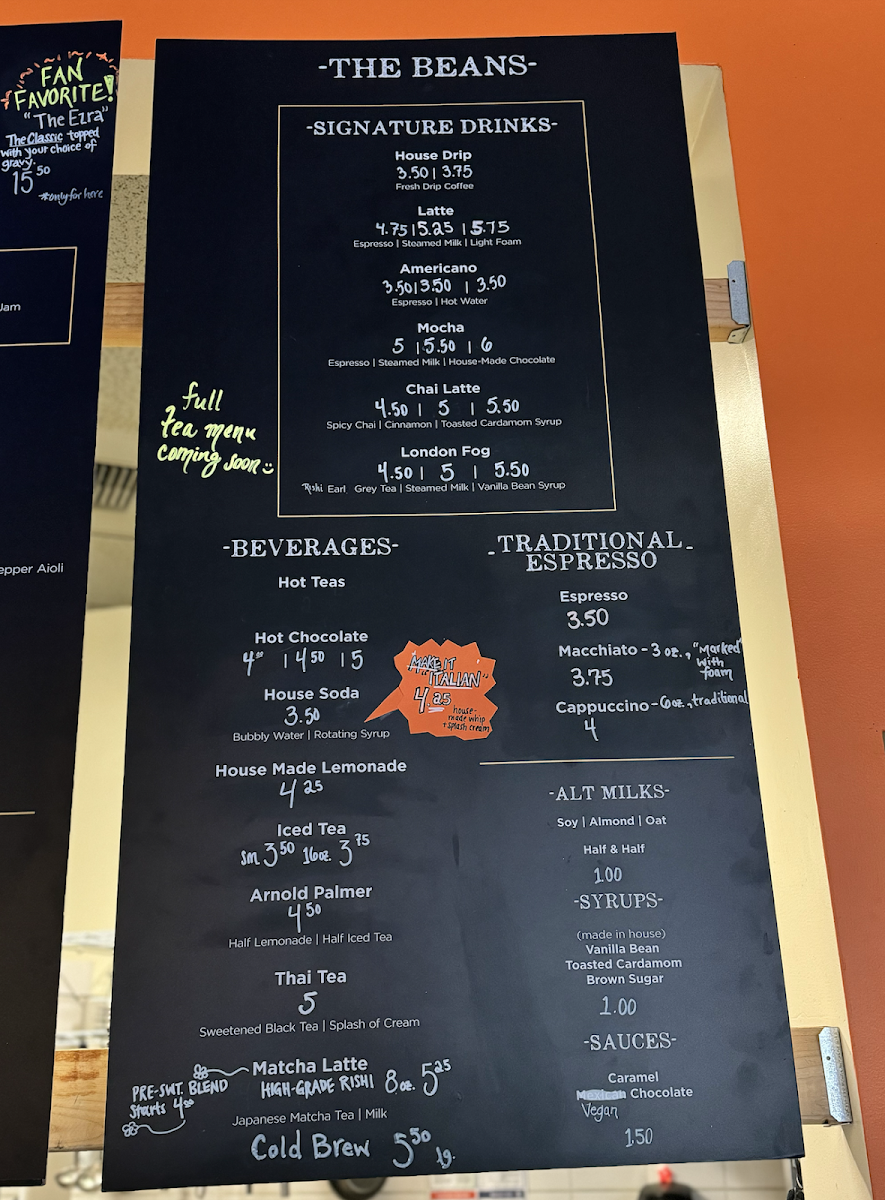 FAN
FAVORITE!
"The Ezra"
The Classic topped
with your choice of
gravy.
15 50
*only for here
Jam
epper Aioli
-THE BEANS-
-SIGNATURE DRINKS-
House Drip
3.50 | 3.75
Fresh Drip Coffee
Latte
4.75 | 5.25 | 5.75
Espresso | Steamed Milk | Light Foam
Americano
3.50 | 3.50 | 3.50
Espresso | Hot Water
Mocha
5 | 5.50 | 6
Espresso | Steamed Milk | House-Made Chocolate
Chai Latte
4.50 | 5 | 5.50
Spicy Chai | Cinnamon | Toasted Cardamom Syrup
London Fog
4.50 | 5 | 5.50
Rishi Earl Grey Tea | Steamed Milk | Vanilla Bean Syrup
full
tea menu
coming soon
-BEVERAGES-
Hot Teas
Hot Chocolate
4.00 | 4 50 | 5
MAKE IT
"ITALIAN"
4.25
house-
made whip
+ splash cream
House Soda
3.50
Bubbly Water | Rotating Syrup
House Made Lemonade
4 25
Iced Tea
sm 3 50 16oz. 3 75
Arnold Palmer
4 50
Half Lemonade | Half Iced Tea
Thai Tea
5
Sweetened Black Tea | Splash of Cream
Matcha Latte
HIGH-GRADE RISHI 8oz. 5 25
PRE-SWT. BLEND
Starts 4 50
Japanese Matcha Tea | Milk
Cold Brew 5 50 lg.
-TRADITIONAL-
ESPRESSO
Espresso
3.50
Macchiato - 3 oz., "Marked"
with
foam
3.75
Cappuccino - 6oz., traditional
4
-ALT MILKS-
Soy | Almond | Oat
Half & Half
1.00
-SYRUPS-
(made in house)
Vanilla Bean
Toasted Cardamom
Brown Sugar
1.00
-SAUCES-
Caramel
Mexican Chocolate
Vegan
1.50